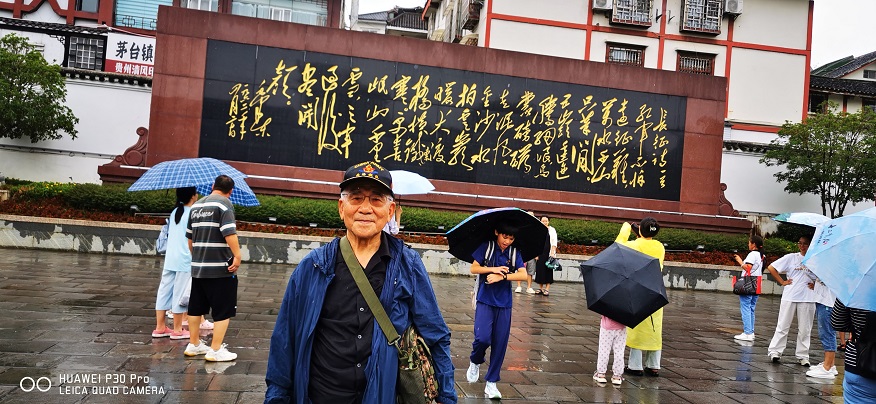 茅台镇
贵州清风印
长征诗一首
红军不怕
远征难
万水千山
只等闲
五岭逶迤
腾细浪乌
蒙磅礴
走泥丸
金沙水
拍云崖
暖大渡
桥横铁索
寒更喜
岷山千里
雪三军
过后
尽开
颜
毛泽东
HUAWEI P30 Pro
LEICA QUAD CAMERA